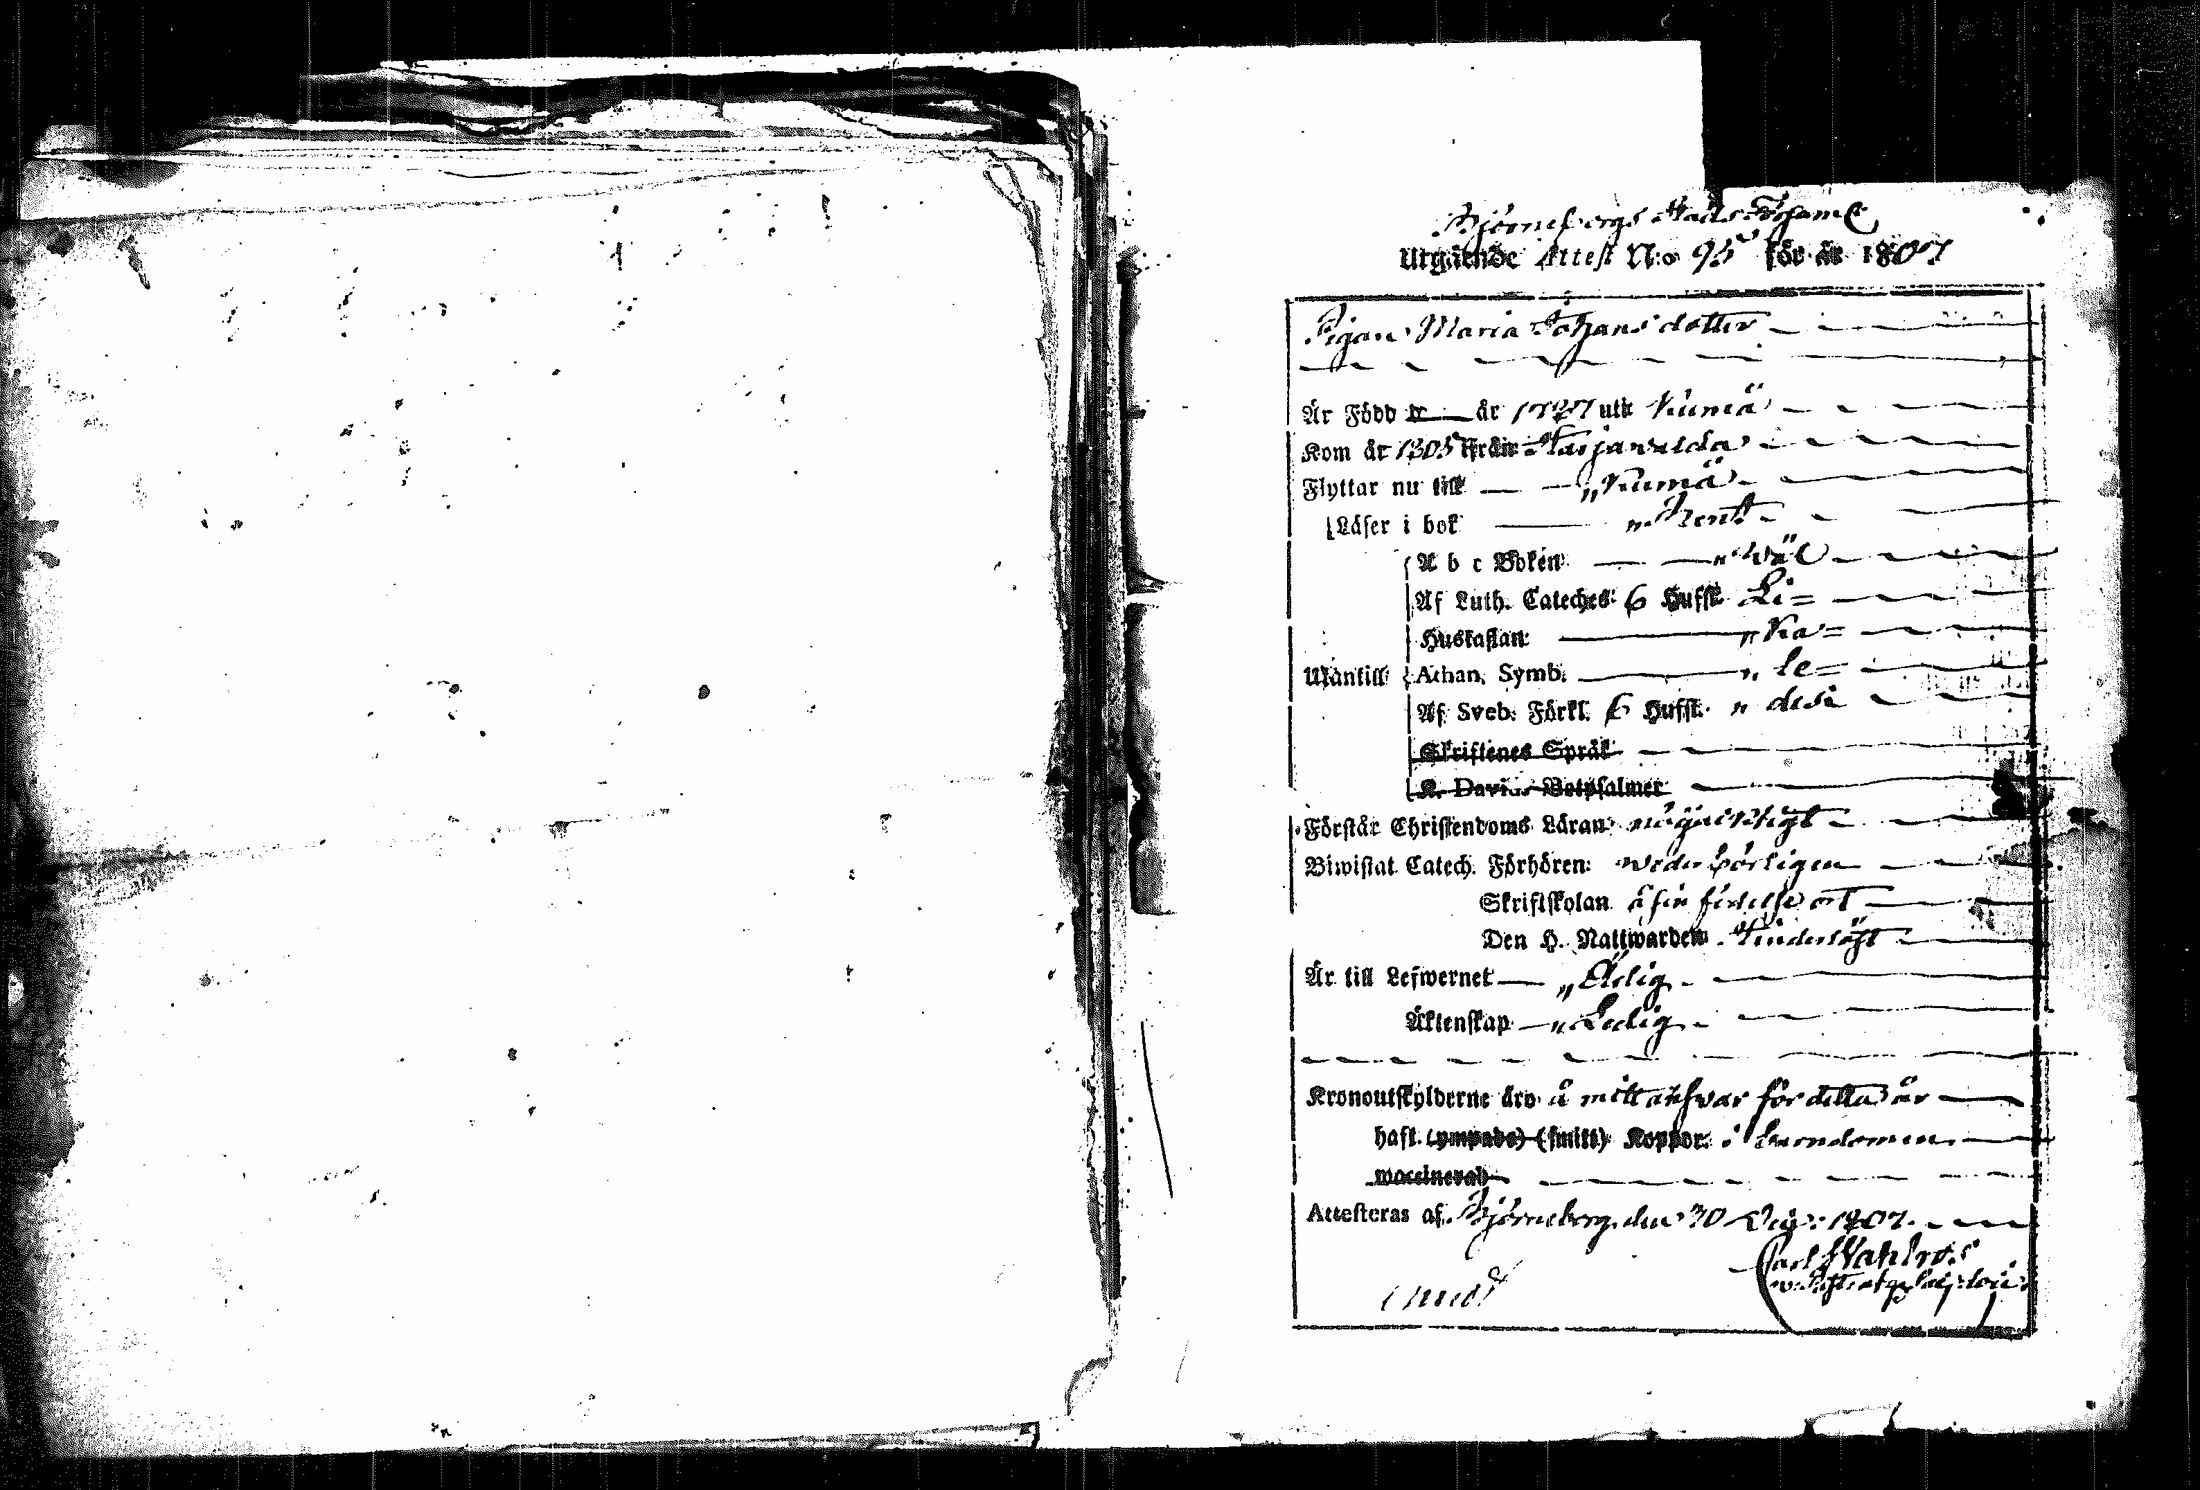 Björneborgs Stads Församl:
Utgående Attest N:o 95 för år 1807
Pigan Maria Johansdotter
Är Född år 1787 uti Kumå
Kom år 1805 ifrån
Flyttar nu till Kumå
Läser i bok Rent
A b c Boken Wäl
Af Luth. Cateches: 6 Hufst. Li=
Hustaflan: Ka=
Utantill Athan. Symb. le=
Af Sveb. Förkl. 6 Hufst. des
Skriftenes Språk
K. Davids Botpsalmer
Förstår Christendoms Läran nöjacktigt
Biwistat Catech. Förhören: wederbörligen
Skriftskolan å sin födelse ort
Den H. Nattwarden
Är till Lefwernet Ärlig
Äktenskap Ledig
Kronoutskylderne äro å mitt answar för detta år
haft (ympade) (smitt) Koppor i barndomen
waccinerad
Attesteras af Björneborg den 30 1807
Carl Wahlroos